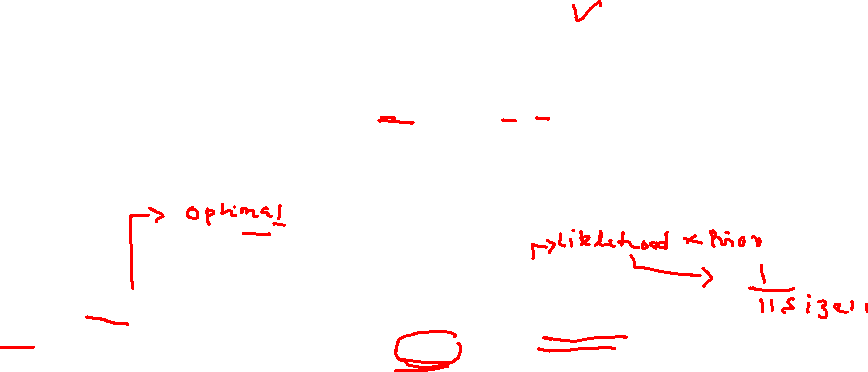 optimal
Likelehood x Prior
1
11sizel1